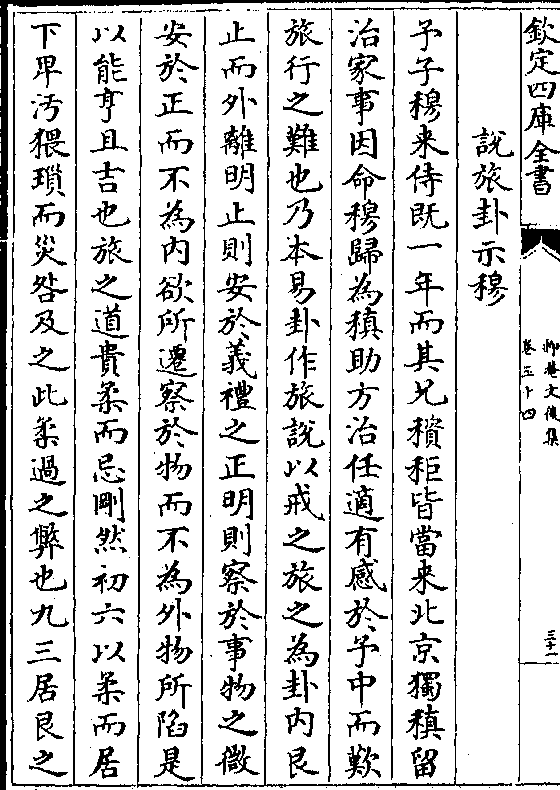 欽定四庫全書
抑菴文後集
卷三十四
三十一
說旅卦示穆
予子穆来侍既一年而其兄積秬皆當来北京獨稹留
治家事因命穆歸為稹助方治任適有感於予中而歎
旅行之難也乃本易卦作旅說以戒之旅之為卦內艮
止而外離明止則安於義禮之正明則察於事物之微
安於正而不為內欲所遷察於物而不為外物所陷是
以能亨且吉也旅之道貴柔而忌剛然初六以柔而居
下卑汚猥瑣而災咎及之此柔過之弊也九三居艮之